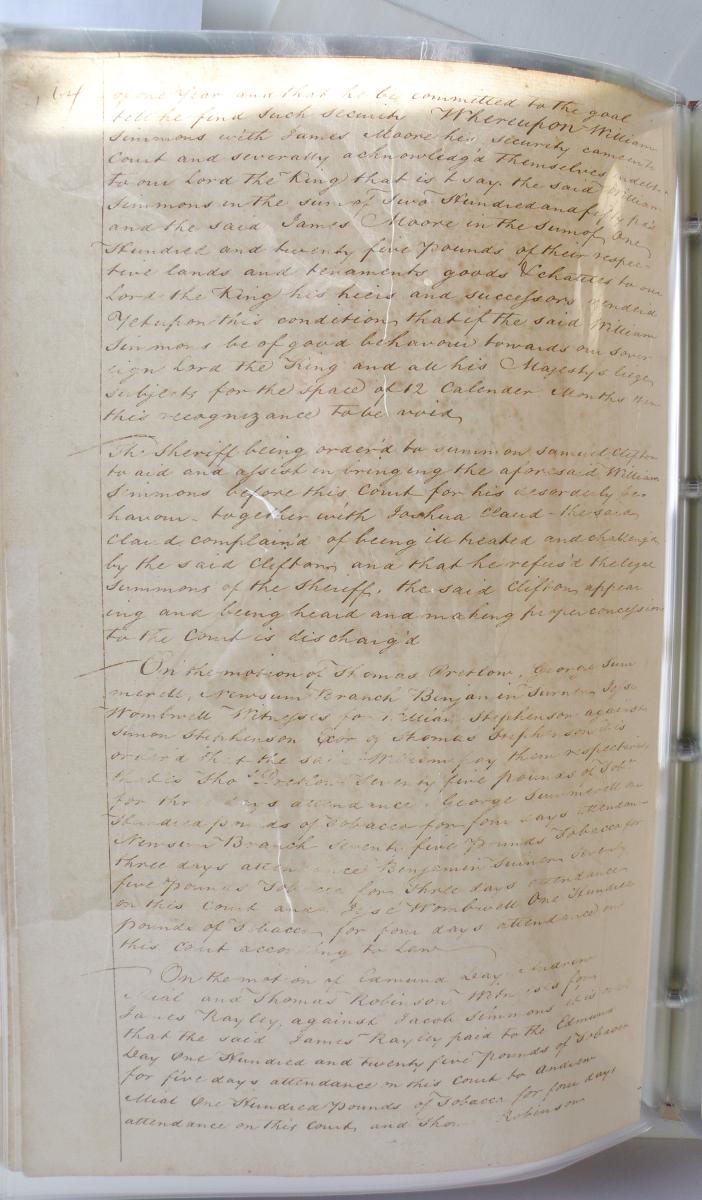 of one Year and that he be committed to the goal
till he find such security Whereupon William
Simmons with James Moore his security came into
Court and severally acknowledg'd themselves indebted
to our Lord the King that is t say the said William
Simmons in the sum of Two Hundred and fifty
and the said James Moore in the sum of One
Hundred and twenty five pounds of their respec
tive lands and tenaments goods & chattles to our
Lord the King his heirs and successors renderd
Yet upon this condition that if the said William
Simmons be of good behavour towards our sover
eign Lord the King and all his Majestys liege
subjects for the space of 12 Calender Months then
this recognizance to be void
The Sheriff being order'd to summon Samuel Clifton
to aid and assist in bringing the aforesaid William
Simmons before this Court for his desorderly be
havour together with Joshua Claud the said
Claud complain'd of being ill treated and challeng'd
by the said Clifton and that he refus'd the legal
summons of the Sheriff, the said Clifton appear
ing and being heard and making proper concession
to the Court is discharg'd
On the motion of Thomas Pretlow, George Sum
merell, Newsum Branch Benjamin Turner
Wombwell Witnesses for William Stephenson against
Simon Stephenson Exor of Thomas Stephenson it is
order'd that the said William pay them respectively
that is Thos Pretlow Seventy five pounds of Tobo
for three days attendance, George Summerell one
Hundred pounds of Tobacco for four days attendance
Newsum Branch Seventy five Pounds Tobacco for
three days attendance Benjamin Turner Seventy
five pounds Tobacco for three days attendance
on this Court and Wombwell One Hundred
pounds of Tobacco for four days attendance on
this Court according to Law
On the motion of Edmund Day Andrew
Mial and Thomas Robinson Witnesses for
James Rayley, against Jacob Simmons it is
that the said James Rayley paid to the Edmund
Day One Hundred and twenty five pounds of Tobacco
for five days attendance on this Court to Andrew
Mial One Hundred pounds of Tobacco for four days
attendance on this Court, and Robinson